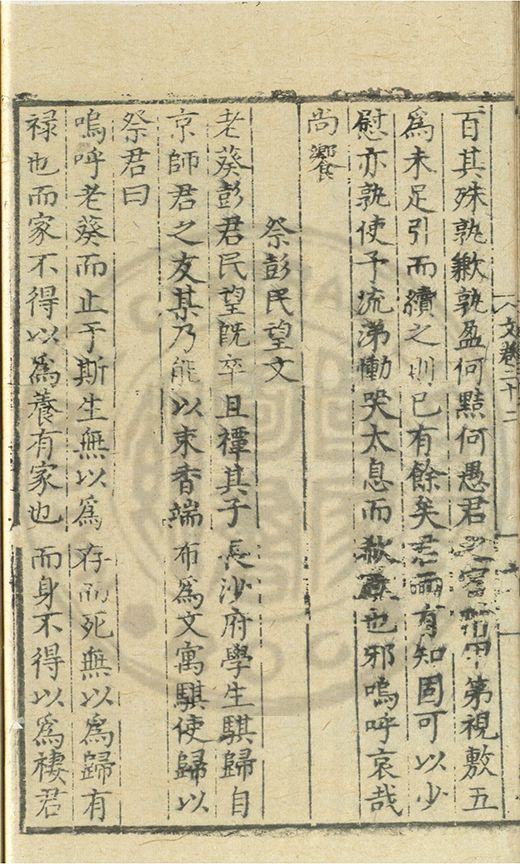 百其殊孰歉孰盈何黠何愚君之富中第視敷五
為未足引而續之則已有餘矣君而有知固可以少
慰亦孰使予流涕慟哭太息而也邪嗚呼哀哉
尚饗
祭彭民望文
老葵彭君民望既卒且禫其子長沙府學生騏歸自
京師君之友某乃能以束香端布為文寓騏使歸以
祭君曰
嗚呼老葵而止于斯生無以為存而死無以為歸有
祿也而家不得以為養有家也而身不得以為棲君
文卷二十二